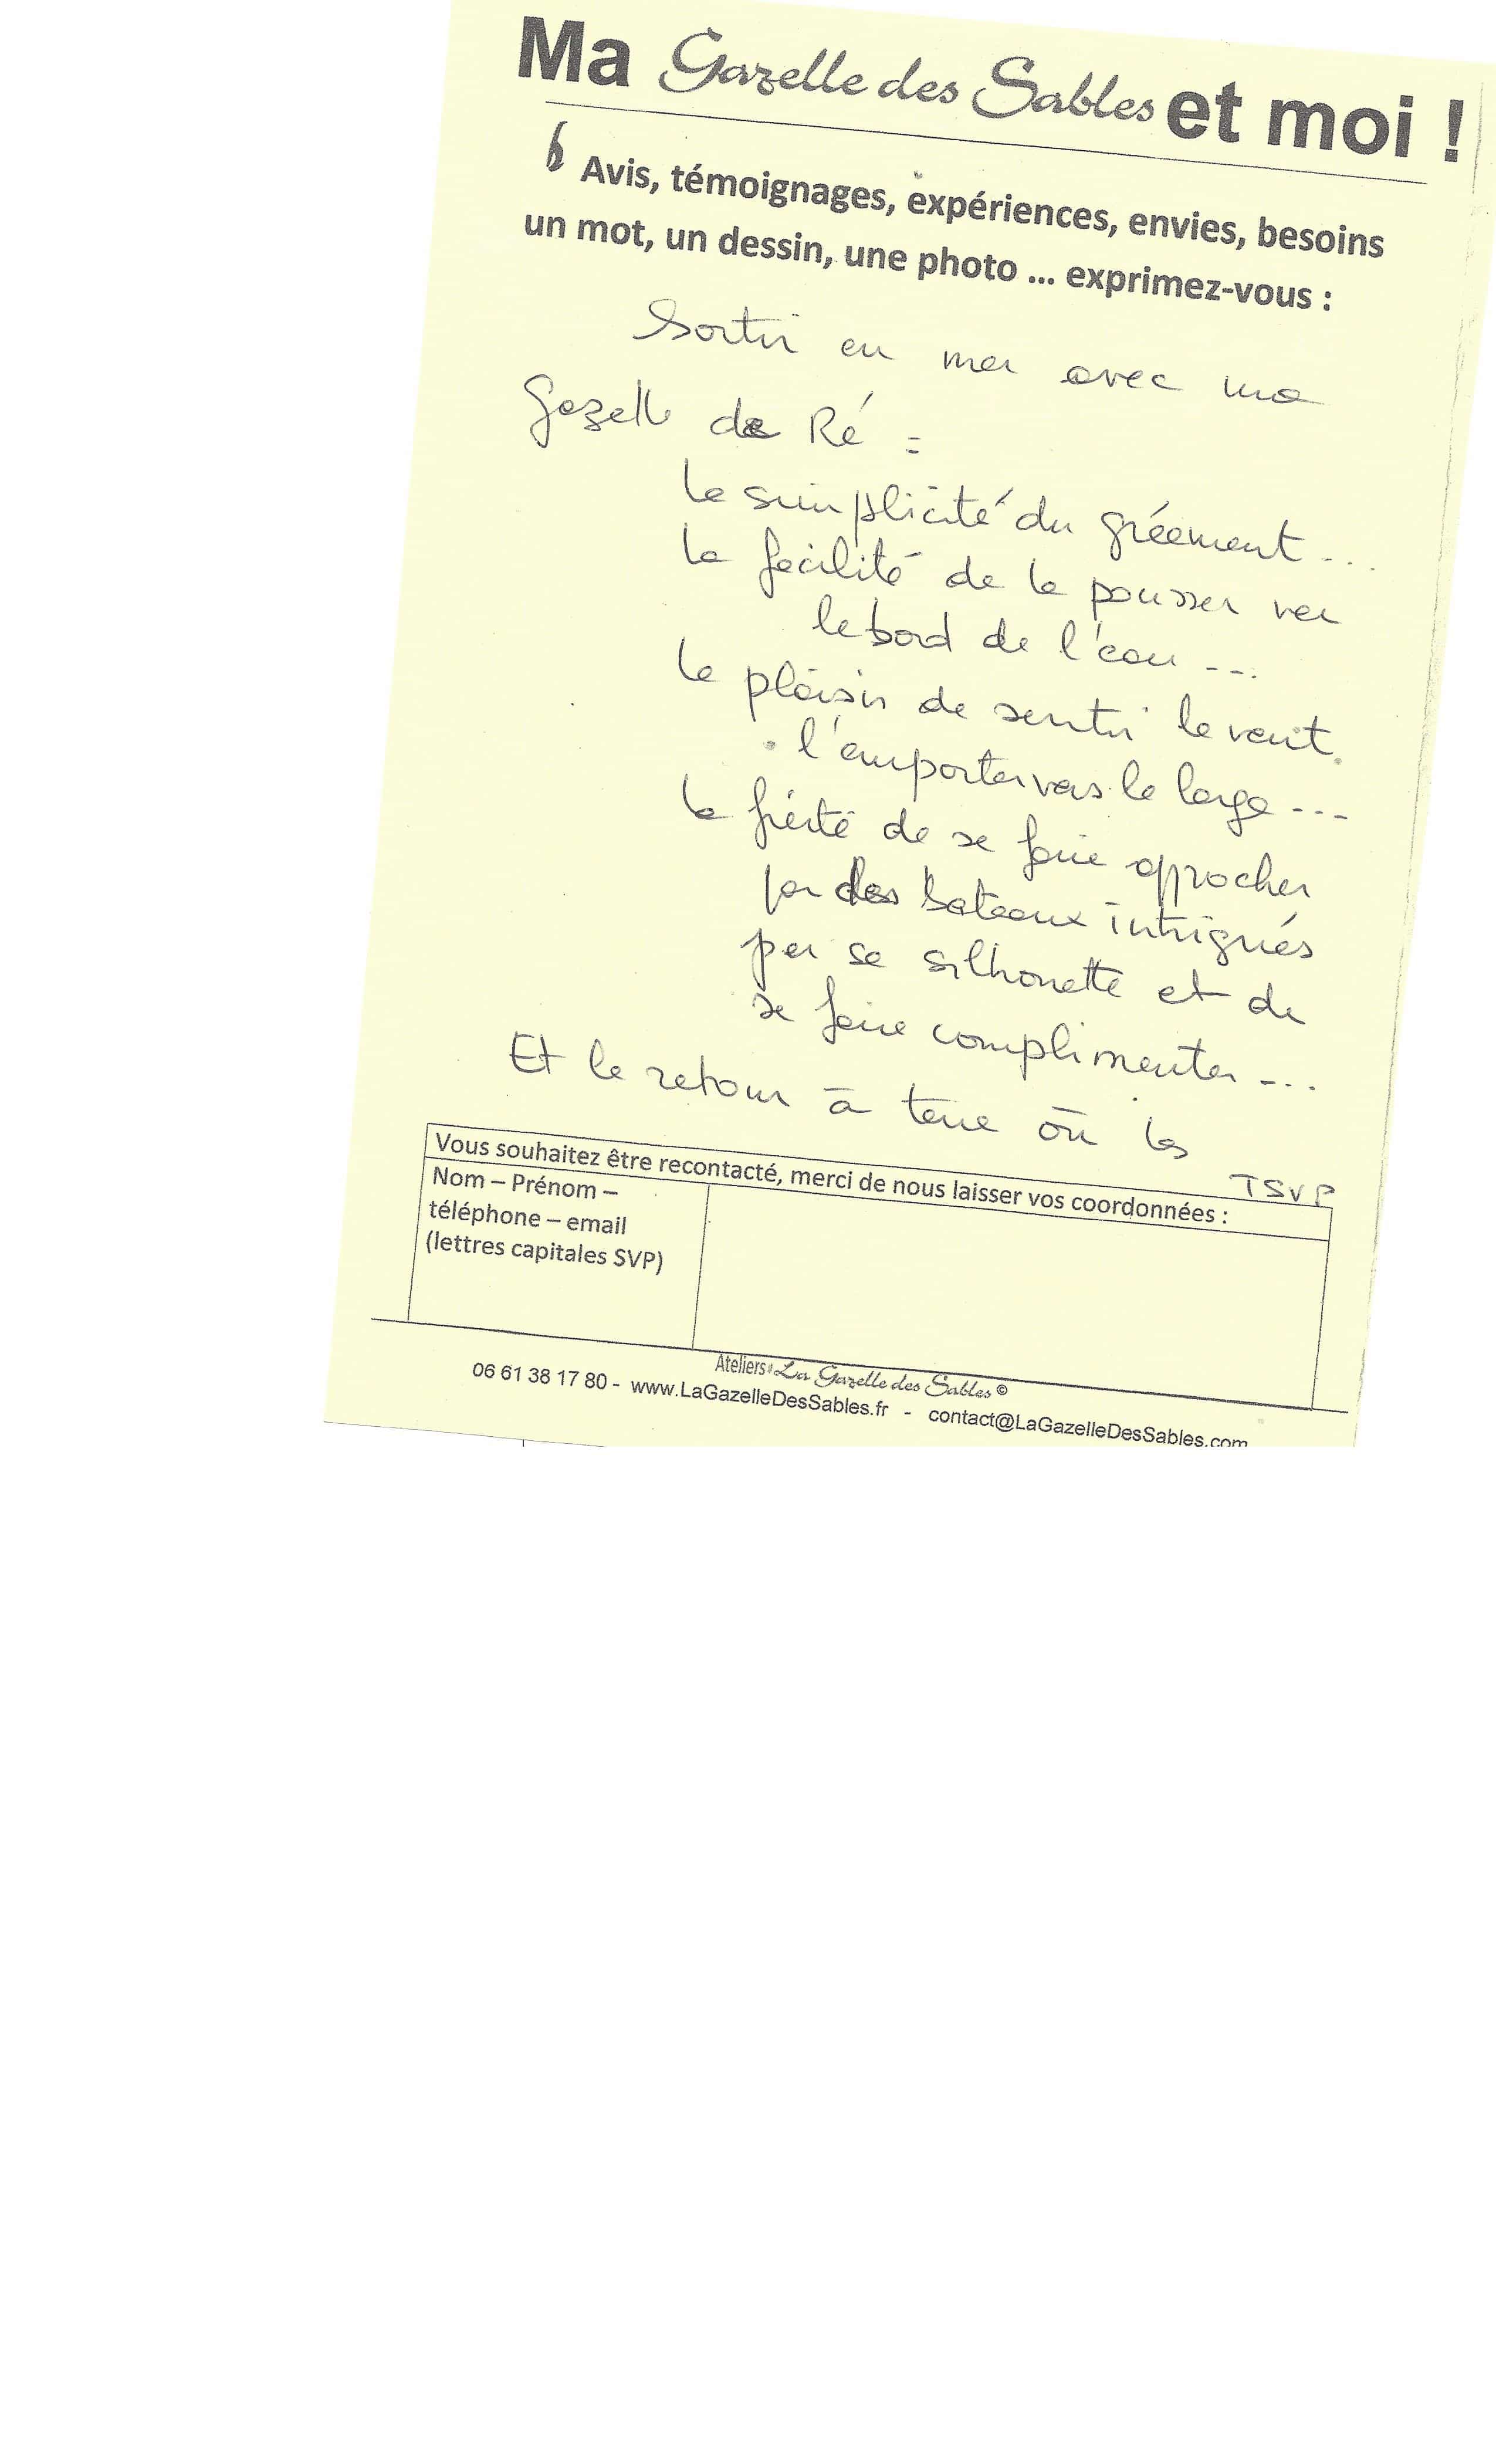 Ma Gazelle des Sables et moi !
Avis, témoignages, expériences, envies, besoins
un mot, un dessin, une photo ... exprimez-vous :
Sortir en mer avec ma
Gazelle de Ré =
la simplicité du gréement ...
la facilité de la pousser vers
le bord de l'eau ...
le plaisir de sentir le vent
l'emporter vers le large ...
la fierté de se faire approcher
par des bateaux intrigués
par sa silhouette et de
se faire complimenter ...
Et le retour à terre où les
TSVP
Vous souhaitez être recontacté, merci de nous laisser vos coordonnées :
Nom – Prénom –
téléphone – email
(lettres capitales SVP)
Ateliers La Gazelle des Sables ©
06 61 38 17 80 - www.LaGazelleDesSables.fr - contact@LaGazelleDesSables.com